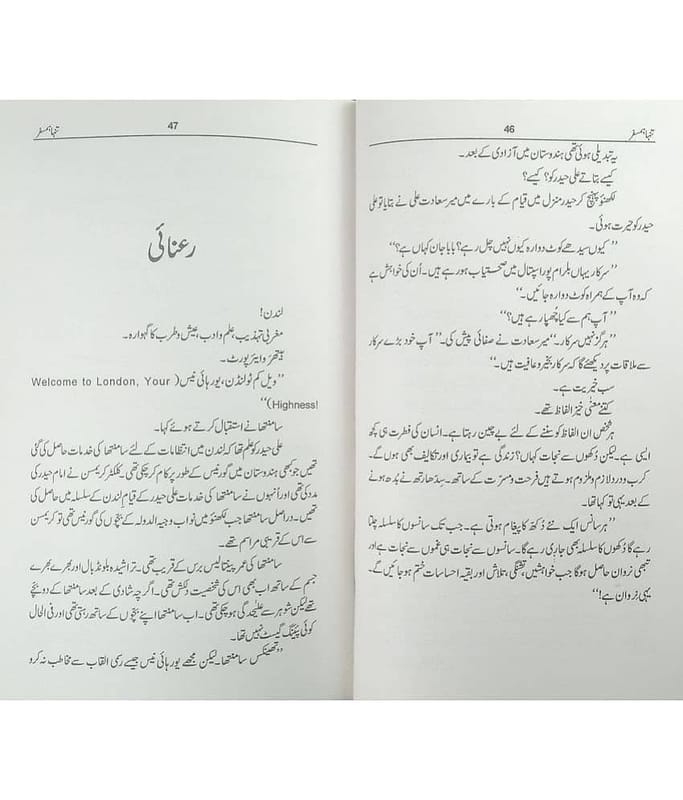 تنہا ہمسفر
46
یہ تبدیلی ہوئی تھی ہندوستان میں آزادی کے بعد۔
کیسے بتاتے علی حیدر کو؟ کیسے؟
لکھنؤ پہنچ کر حیدر منزل میں قیام کے بارے میں میر سعادت علی نے بتایا تو علی
حیدر کو حیرت ہوئی۔
’’کیوں سیدھے کوٹ دوارہ کیوں نہیں چل رہے؟ بابا جان کہاں ہے؟‘‘
’’سرکار یہاں بلرام پور اسپتال میں صحتیاب ہو رہے ہیں۔ اُن کی خواہش ہے
کہ وہ آپ کے ہمراہ کوٹ دوارہ جائیں۔‘‘
’’آپ ہم سے کیا چُھپا رہے ہیں؟‘‘
’’ہرگز نہیں سرکار۔‘‘ میر سعادت نے صفائی پیش کی۔ ’’آپ خود بڑے سرکار
سے ملاقات پر دیکھئے گا کہ سرکار بخیر و عافیت ہیں۔‘‘
سب خیریت ہے۔
کتنے معنٰی خیز الفاظ تھے۔
ہر شخص ان الفاظ کو سننے کے لئے بے چین رہتا ہے۔ انسان کی فطرت ہی کچھ
ایسی ہے۔ لیکن دُکھوں سے نجات کہاں؟ زندگی ہے تو بیماری اور تکالیف بھی ہوں گی۔
کرب و درد لازم و ملزوم ہوتے ہیں فرحت و مسرّت کے ساتھ۔ سِدھارتھ نے بُدھ ہونے
کے بعد یہی تو کہا تھا۔
’’ہر سانس ایک نئے دُکھ کا پیغام ہوتی ہے۔ جب تک سانسوں کا سلسلہ چلتا
رہے گا دُکھوں کا سلسلہ بھی جاری رہے گا۔ سانسوں سے نجات ہی غموں سے نجات ہے اور
تبھی نِروان حاصل ہوگا جب خواہشیں، تشنگی، تلاش اور بقیہ احساسات ختم ہو جائیں گے۔
یہی نِروان ہے!‘‘
تنہا ہمسفر
47
رعنائی
لندن!
مغربی تہذیب، علم و ادب، عیش و طرب کا گہوارہ۔
ہیتھرو ایئرپورٹ۔
’’ویل کم ٹو لنڈن، یور ہائی نیس (Welcome to London, Your
Highness!)‘‘
سامنتھا نے استقبال کرتے ہوئے کہا۔
علی حیدر کو علم تھا کہ لندن میں انتظامات کے لئے سامنتھا کی خدمات حاصل کی گئی
تھیں جو کبھی ہندوستان میں گورنیس کے طور پر کام کر چکی تھی۔ کلکٹر کریمسن نے امام حیدر کی
مدد کی تھی اور اُنہوں نے سامنتھا کی خدمات علی حیدر کے قیامِ لندن کے سلسلہ میں حاصل کی
تھیں۔ دراصل سامنتھا جب لکھنؤ میں نواب وجیہ الدولہ کے بچّوں کی گورنیس تھی تو کریمسن
سے اس کے قریبی مراسم تھے۔
سامنتھا کی عمر پینتالیس برس کے قریب تھی۔ تراشیدہ بلونڈ بال اور بھرے بھرے
جسم کے ساتھ اب بھی اس کی شخصیت دلکش تھی۔ اگرچہ شادی کے بعد سامنتھا کے دو بچّے
تھے لیکن شوہر سے علیٰحدگی ہو چکی تھی۔ اب سامنتھا اپنے بچّوں کے ساتھ رہتی تھی اور فی الحال
کوئی پیئنگ گیسٹ نہیں تھا۔
’’تھینکس سامنتھا۔ لیکن مجھے یور ہائی نیس جیسے رسمی القاب سے مخاطب نہ کرو